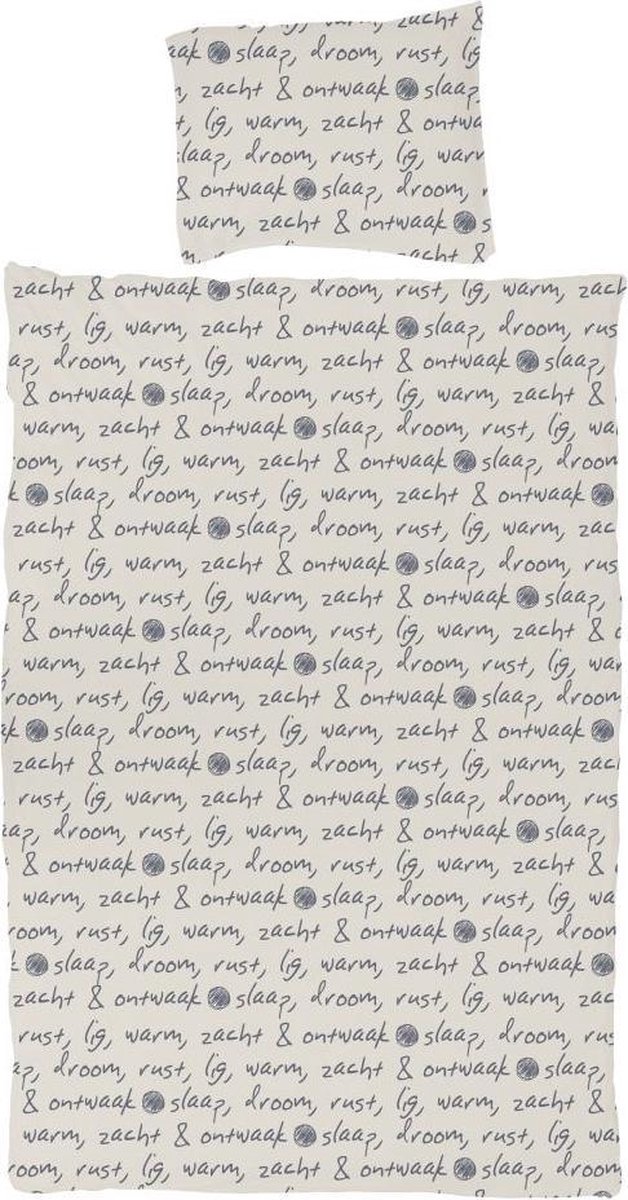 zacht &
aak slaap, droom, rust, lig
zacht & ontwaak slaap,
lig, warm, zacht & ontwa
slaap, droom, rust, lig, warm
& ontwaak slaap, droom,
warm, zacht & ontwaak s
zacht &
zacht & ontwaak slaap, droom, rust, lig, warm, zach
rust, lig, warm, zacht & ontwaak slaap, droom, rus
ap, droom, rust, lig, warm, zacht & ontwaak slaap,
& ontwaak slaap, droom, rust, lig, warm, zacht &
warm, zacht & ontwaak slaap, droom, rust, lig, wa
oom, rust, lig, warm, zacht & ontwaak slaap, droom
k slaap, droom, rust, lig, warm, zacht & ontwaak
zacht & ontwaak slaap, droom, rust, lig, warm, zac
rust, lig, warm, zacht & ontwaak slaap, droom, rus
ap, droom, rust, lig, warm, zacht & ontwaak slaap,
& ontwaak slaap, droom, rust, lig, warm, zacht &
warm, zacht & ontwaak slaap, droom, rust, lig, war
room, rust, lig, warm, zacht & ontwaak slaap, droom
ak slaap, droom, rust, lig, warm, zacht & ontwaak
zacht & ontwaak slaap, droom, rust, lig, warm, zach
rust, lig, warm, zacht & ontwaak slaap, droom, rus
aap, droom, rust, lig, warm, zacht & ontwaak slaap,
& ontwaak slaap, droom, rust, lig, warm, zacht &
warm, zacht & ontwaak slaap, droom, rust, lig, wa
room, rust, lig, warm, zacht & ontwaak slaap, droom
k slaap, droom, rust, lig, warm, zacht & ontwaak
zacht & ontwaak slaap, droom, rust, lig, warm, zac
rust, lig, warm, zacht & ontwaak slaap, droom, rus
ap, droom, rust, lig, warm, zacht & ontwaak slaap,
& ontwaak slaap, droom, rust, lig, warm, zacht &
warm, zacht & ontwaak slaap, droom, rust, lig, wa
room, rust, lig, warm, zacht & ontwaak slaap, droom